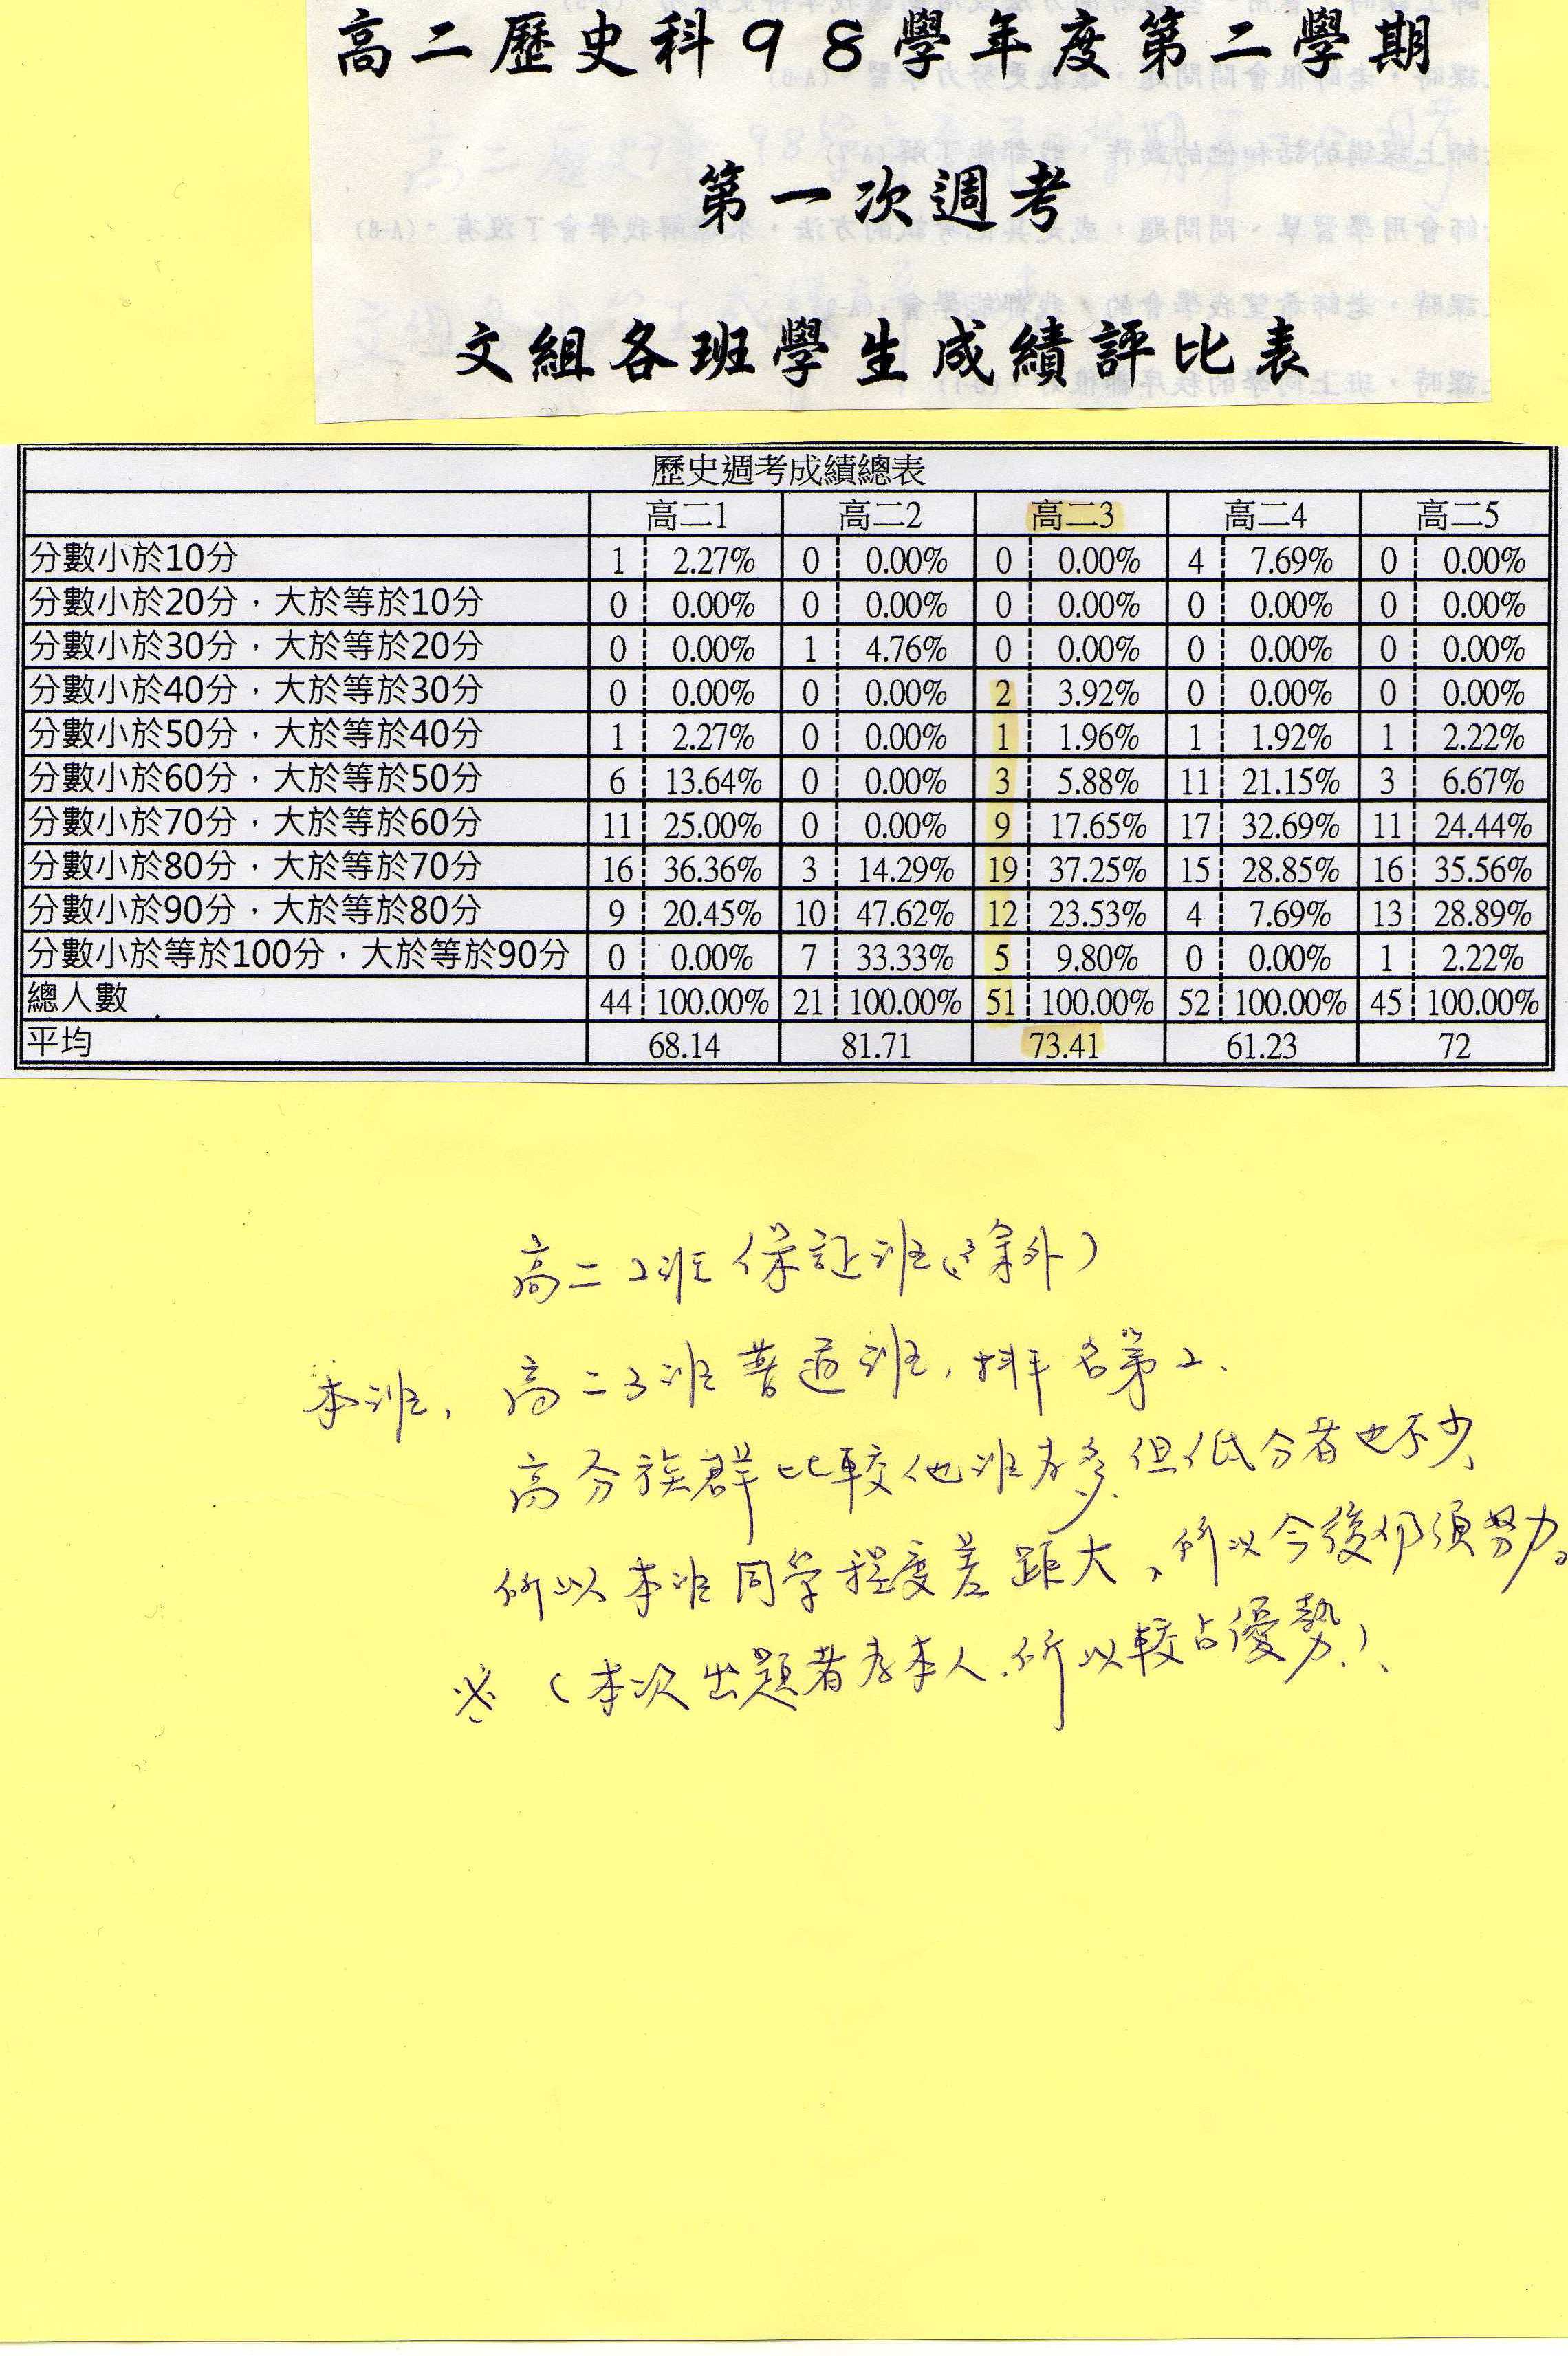 高二歷史科98學年度第二學期
第一次週考
文組各班學生成績評比表
歷史週考成績總表
高二1 高二2 高二3 高二4 高二5
分數小於10分 1 2.27% 0 0.00% 0 0.00% 4 7.69% 0 0.00%
分數小於20分，大於等於10分 0 0.00% 0 0.00% 0 0.00% 0 0.00% 0 0.00%
分數小於30分，大於等於20分 0 0.00% 1 4.76% 0 0.00% 0 0.00% 0 0.00%
分數小於40分，大於等於30分 0 0.00% 0 0.00% 2 3.92% 0 0.00% 0 0.00%
分數小於50分，大於等於40分 1 2.27% 0 0.00% 1 1.96% 1 1.92% 1 2.22%
分數小於60分，大於等於50分 6 13.64% 0 0.00% 3 5.88% 11 21.15% 3 6.67%
分數小於70分，大於等於60分 11 25.00% 0 0.00% 9 17.65% 17 32.69% 11 24.44%
分數小於80分，大於等於70分 16 36.36% 3 14.29% 19 37.25% 15 28.85% 16 35.56%
分數小於90分，大於等於80分 9 20.45% 10 47.62% 12 23.53% 4 7.69% 13 28.89%
分數小於等於100分，大於等於90分 0 0.00% 7 33.33% 5 9.80% 0 0.00% 1 2.22%
總人數 44 100.00% 21 100.00% 51 100.00% 52 100.00% 45 100.00%
平均 68.14 81.71 73.41 61.23 72
高二2班保証班(除外)
本班，高二3班普通班，排名第2.
高分族群比較他班為多，但低分者也不少，
所以本班同學程度差距大，所以今後仍須努力。
※（本次出題者為本人，所以較占優勢）、